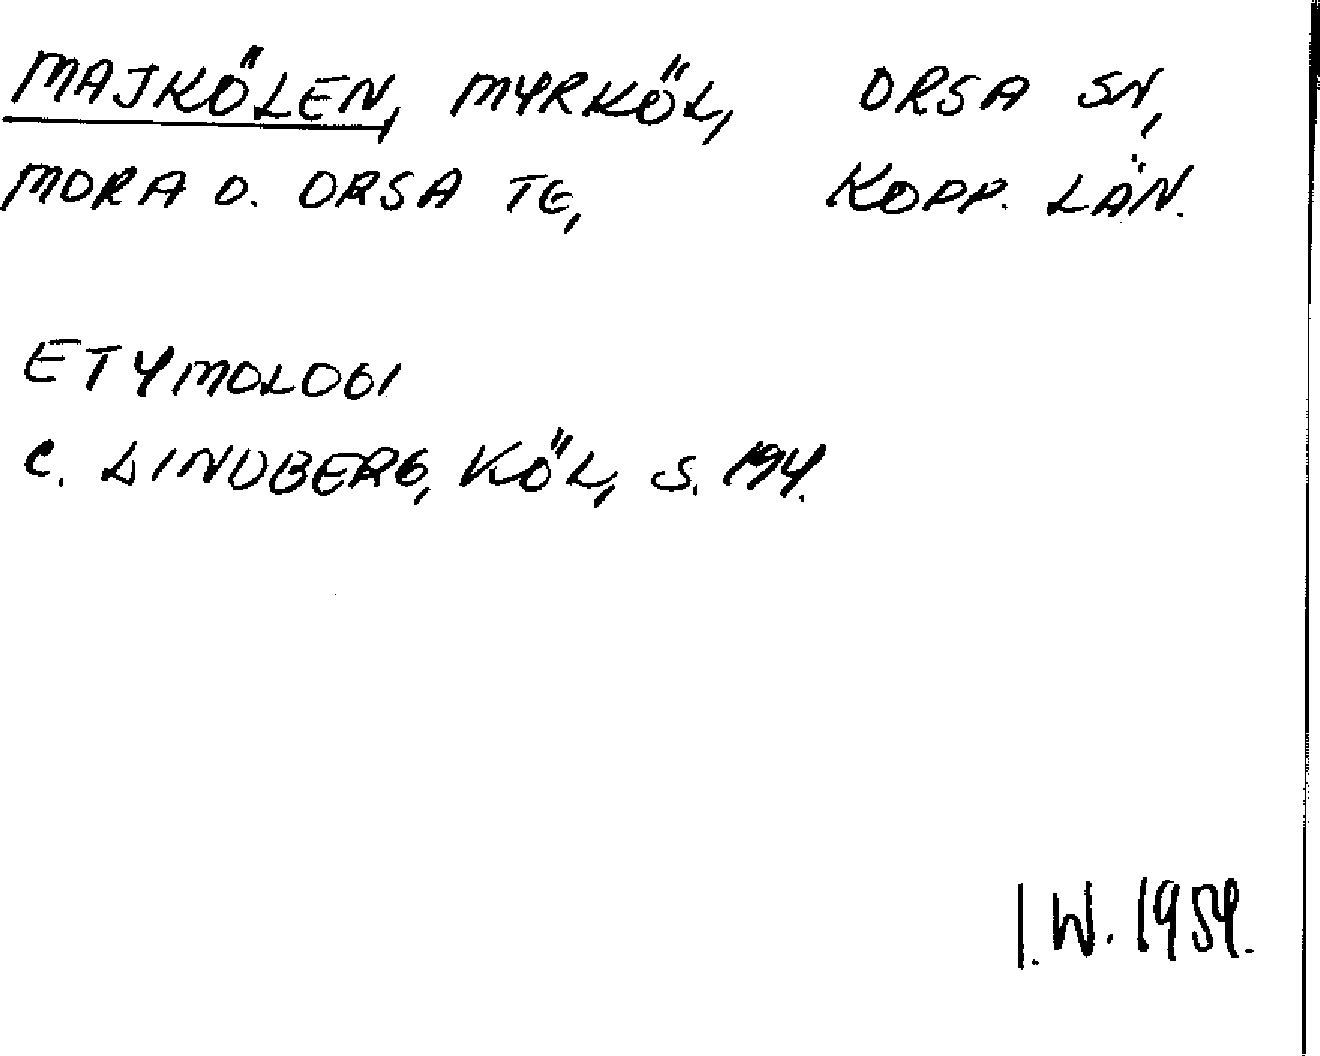 MAJKÖLEN, MYRKÖL, ORSA SN,
MORA O. ORSA TE, KOPP. LÄN.
ETYMOLOGI
C. LINDBERG, KÖL, S. 194.
I. W. 1959.